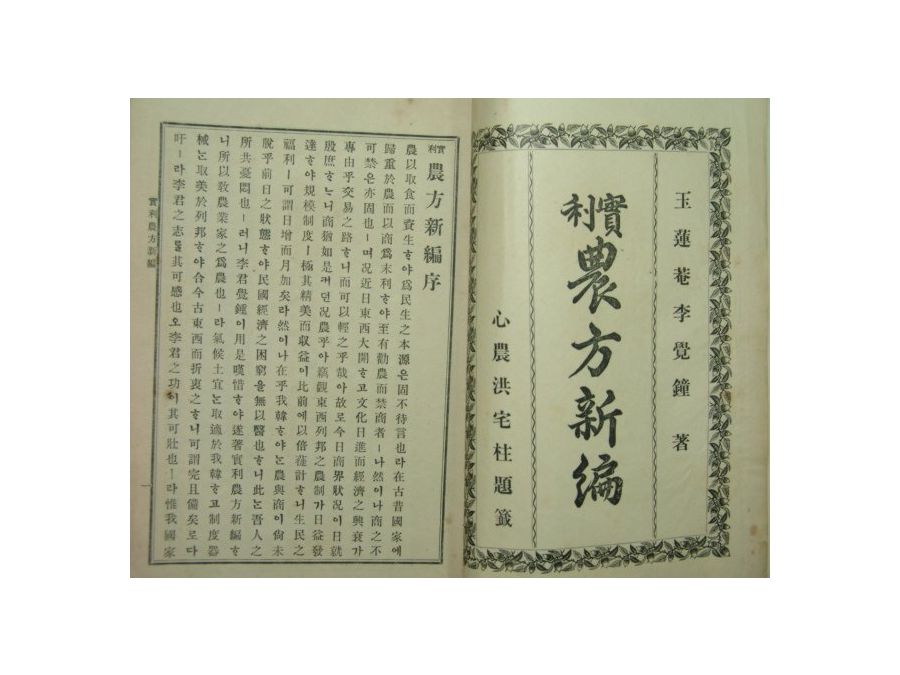 玉蓮菴李覺鐘 著
實利農方新編
心農洪宅柱題籤
實利農方新編序
農以取食而資生ᄒᆞ야爲民生之本源은固不待言也라在古昔國家에
歸重於農而以商爲末利ᄒᆞ야至有勸農而禁商者ㅣ나然이나商之不
可禁은亦固也ㅣ며况近日東西大開ᄒᆞ고文化日進而經濟之興衰가
專由乎交易之路ᄒᆞ니而可以輕之乎哉아故로今日商界狀况이日就
殷庶ᄒᆞᄂᆞ니商猶如是커던况農乎아竊觀東西列邦之農制가日益發
達ᄒᆞ야規模制度ㅣ極其精美而収益이比前에以倍蓰計ᄒᆞ니生民之
福利ㅣ可謂日增而月加矣라然이나在乎我韓ᄒᆞ야ᄂᆞᆫ農與商이尙未
脫乎前日之狀態ᄒᆞ야民國經濟之困窮을無以醫也ᄒᆞ니此ᄂᆞᆫ吾人之
所共憂悶也ㅣ러니李君覺鍾이用是嘆惜ᄒᆞ야遂著實利農方新編ᄒᆞ
니所以敎農業家之爲農也ㅣ라氣候土宜ᄂᆞᆫ取適於我韓ᄒᆞ고制度器
械ᄂᆞᆫ取美於列邦ᄒᆞ야合今古東西而折衷之ᄒᆞ니可謂完且備矣로다
吁ㅣ라李君之志ᄅᆞᆯ其可感也오李君之功이其可壯也ㅣ라惟我國家
實利農方新編